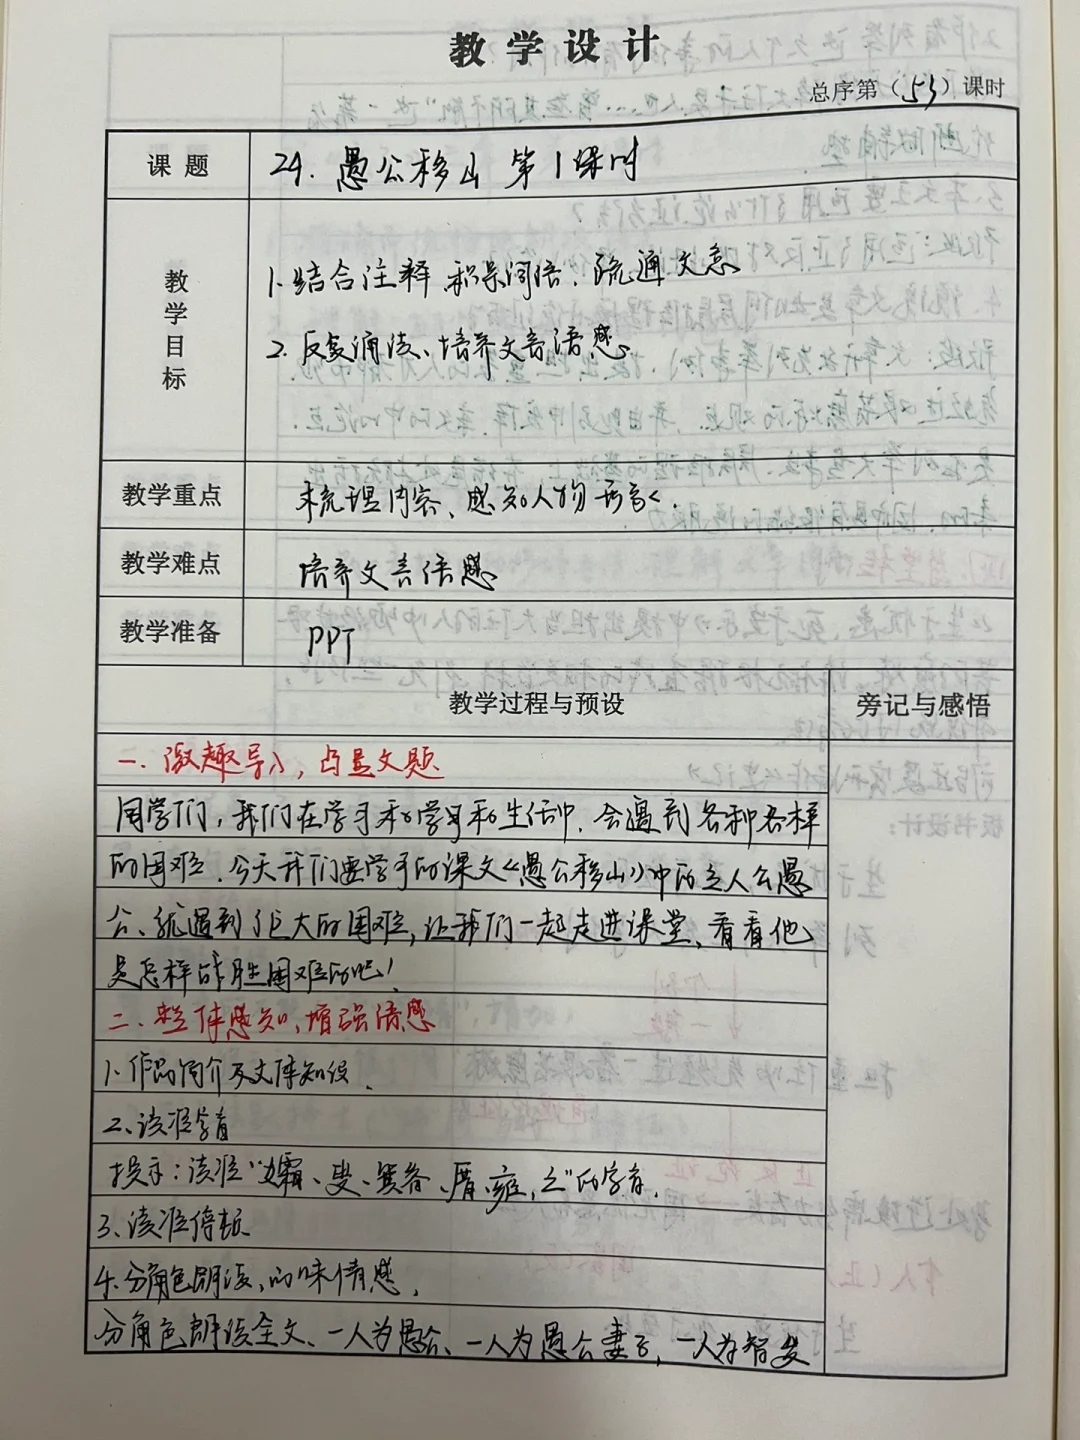 教学设计
总序第（53）课时
课题 24. 愚公移山 第1课时
教学目标
1. 结合注释 积累词语、疏通文意
2. 反复诵读、培养文言语感
教学重点 梳理内容、感知人物形象
教学难点 培养文言语感
教学准备 PPT
教学过程与预设 旁记与感悟
一. 激趣导入，凸显文题
同学们，我们在学习和学习和生活中，会遇到各种各样
的困难，今天我们要学习的课文《愚公移山》中的主人公愚
公、就遇到了巨大的困难，让我们一起走进课堂，看看他
是怎样战胜困难的吧！
二、整体感知，增强语感
1. 作品简介及文体知识
2、读准字音
提示：读准“孀、叟、箕畚、厝、雍，之”的字音．
3、读准停顿
4. 分角色朗读、 味情感．
分角色朗读全文、一人为愚公、一人为愚公妻子，一人为智叟